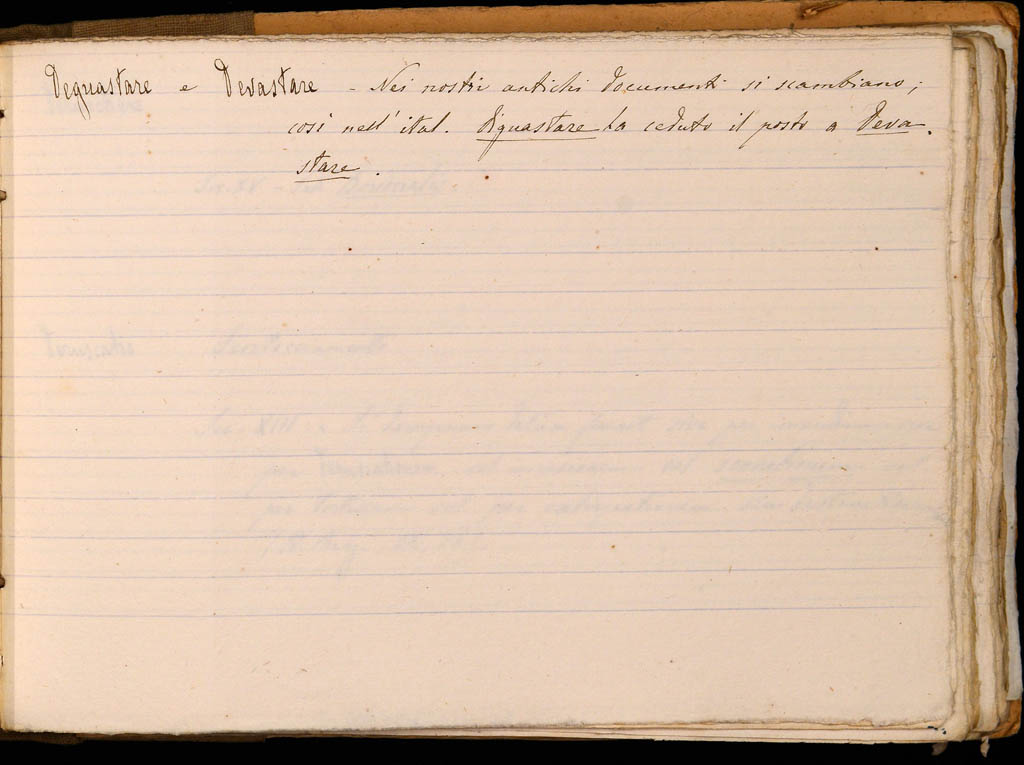 Deguastare e Devastare - Nei nostri antichi documenti si scambiano;
così nell' ital. Diguastare ha ceduto il posto a Deva-
stare.